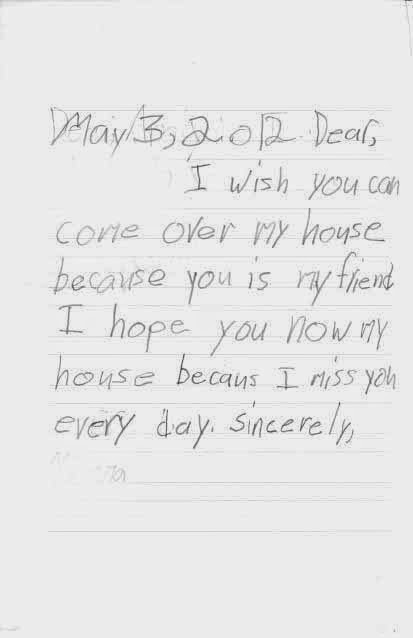 May 3, 2012 Dear,
I wish you can
come over my house
because you is my friend
I hope you now my
house becaus I miss you
every day. Sincerely,